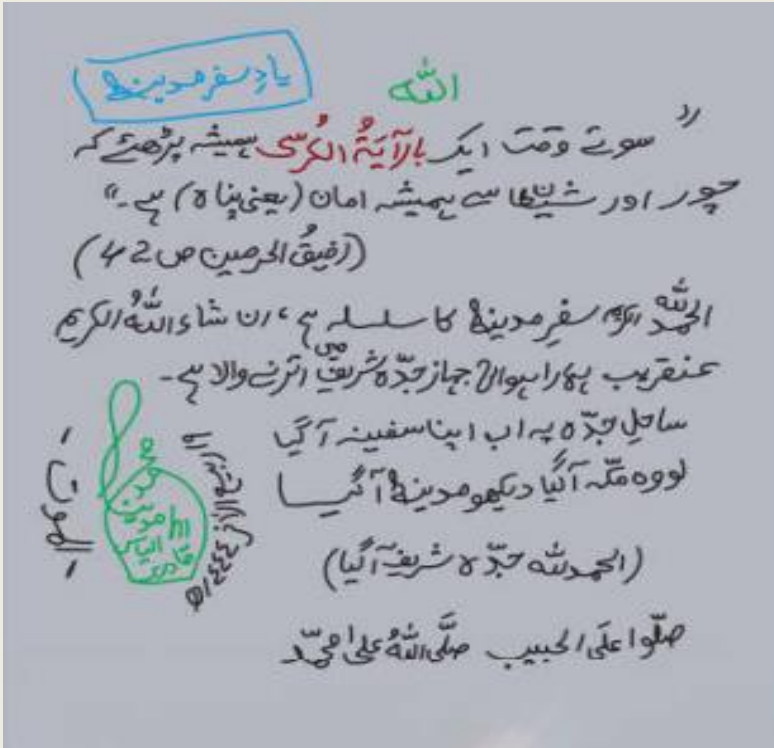 یادِ سفرِ مدینہ
اللہ
”سوتے وقت ایک بار آیَۃُ الکُرسی ہمیشہ پڑھئے کہ
چور اور شیطان سے ہمیشہ امان (یعنی پناہ) ہے۔“
(رفیقُ الحرمین ص 42)
الحمدللہ الکریم سفرِ مدینہ کا سلسلہ ہے، ان شاء اللہُ الکریم
عنقریب ہمارا ہوائی جہاز جدّہ شریف میں اترنے والا ہے۔
ساحلِ جدّہ پہ اب اپنا سفینہ آگیا
لو وہ مکّہ آگیا دیکھو مدینہ آگیا
(الحمدللہ جدّہ شریف آگیا)
صلّوا علَی الحبیب صلَّی اللہُ علیٰ محمّد
- الموت -